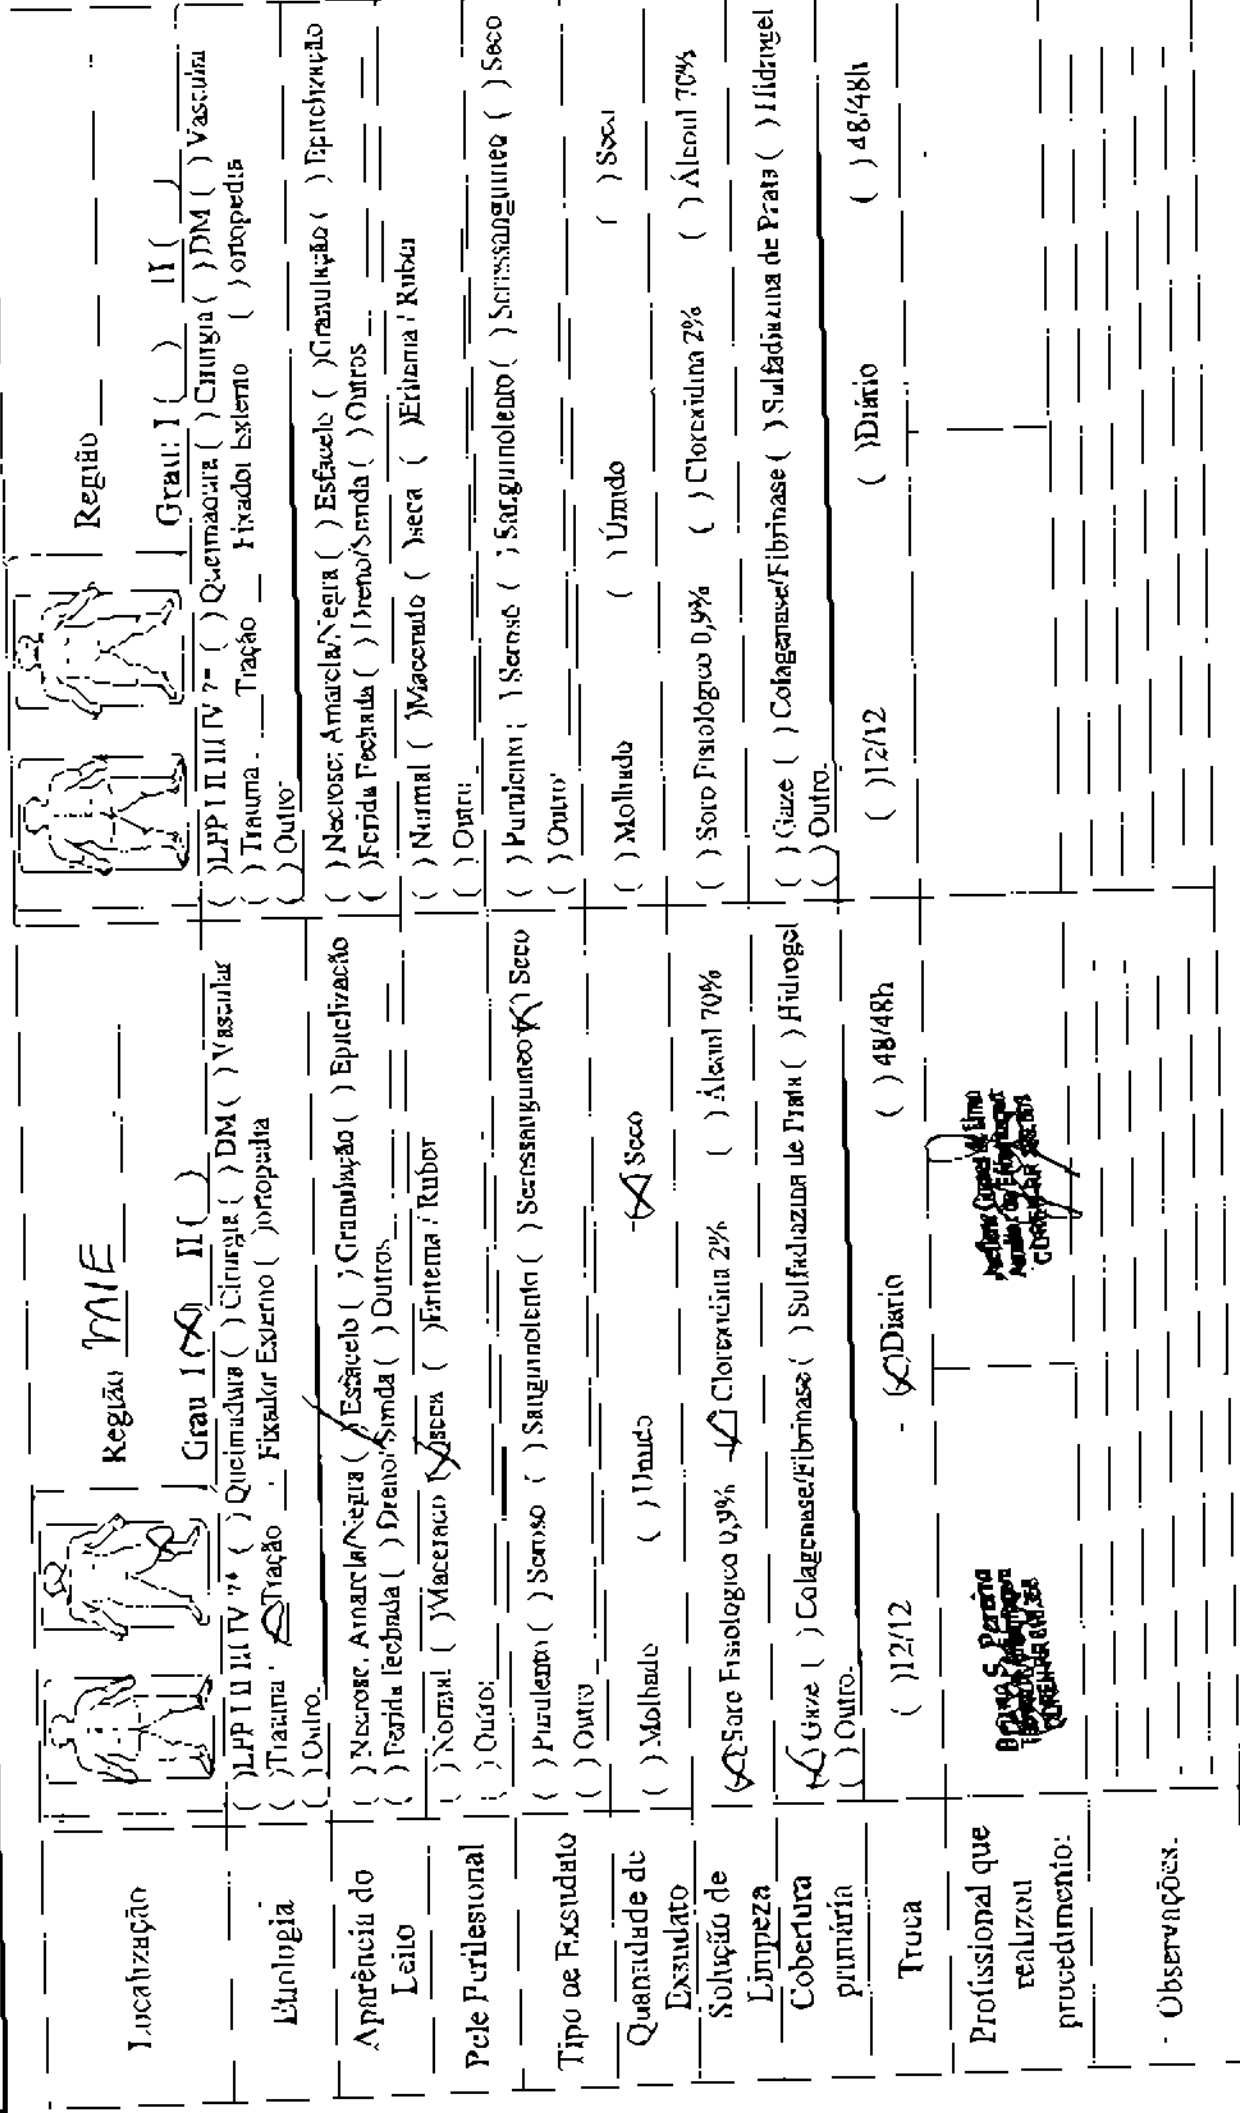 Localização
Região MIE
Grau I (X) II ( )
Região
Grau: I ( ) II ( )
Etiologia
( )LPP I II III IV ( ) Queimadura ( ) Cirurgia ( ) DM ( ) Vascular
( )Trauma Tração Fixador Externo ( )ortopedia
( ) Outro
( )LPP I II III IV ( ) Queimadura ( ) Cirurgia ( ) DM ( ) Vascular
( ) Trauma Tração Fixador Externo ( ) ortopedia
( ) Outro
Aparência do
Leito
( ) Necrose: Amarela/Negra ( ) Esfacelo ( ) Granulação ( ) Epitelização
( ) Ferida fechada ( ) Dreno/Sonda ( ) Outros
( ) Necrose: Amarela/Negra ( ) Esfacelo ( )Granulação ( ) Epitelização
( )Ferida Fechada ( ) Dreno/Sonda ( ) Outros
Pele Perilesional
( ) Normal ( )Macerado (X)seca ( )Eritema / Rubor
( ) Outro:
( ) Normal ( )Macerado ( )seca ( )Eritema / Rubor
( ) Outro:
Tipo de Exsudato
( ) Purulento ( ) Seroso ( ) Sanguinolento ( ) Serossanguineo (X) Seco
( ) Outro
( ) Purulento ( ) Seroso ( ) Sanguinolento ( ) Serossanguineo ( ) Seco
( ) Outro
Quantidade de
Exsudato
( ) Molhado ( ) Úmido (X) Seco
( ) Molhado ( ) Úmido ( ) Seco
Solução de
Limpeza
(X) Soro Fisiológico 0,9% Clorexidina 2% ( ) Álcool 70%
( ) Soro Fisiológico 0,9% ( ) Clorexidina 2% ( ) Álcool 70%
Cobertura
primária
(X) Gaze ( ) Colagenase/Fibrinase ( ) Sulfadiazina de Prata ( ) Hidrogel
( ) Outro
( ) Gaze ( ) Colagenase/Fibrinase ( ) Sulfadiazina de Prata ( ) Hidrogel
( ) Outro
Troca
( )12/12 (X)Diario ( ) 48/48h
( )12/12 ( )Diário ( ) 48/48h
Profissional que
realizou
procedimento:
S. Pereira
Observações.